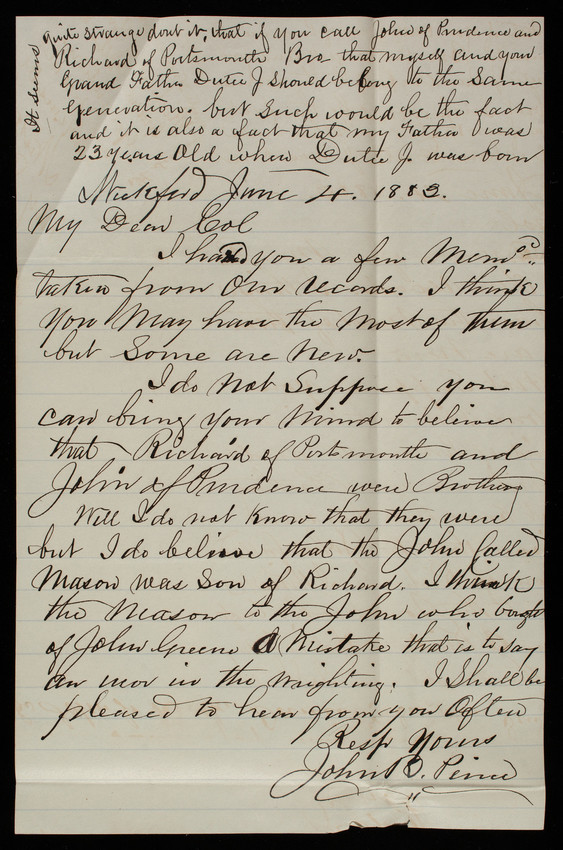 It seems
quite strange dont it, that if you call John of Prudence and
Richard of Portsmouth Bro that myself and your
Grand Father Dutee J should belong to the Same
Generation. but Such would be the fact
and it is also a fact that my Father was
23 years Old when Dutee J. was born
Wickford June 4. 1883.
My Dear Col
I hand you a few Mem
taken from Our records. I think
you May have the Most of them
but Some are New.
I do Not Suppose you
can bring your Mind to believe
that Richard of Portsmouth and
John of Prudence were Brothers
Will I do not Know that they were
but I do believe that the John Called
Mason was Son of Richard. I think
the Mason to the John who bought
of John Greene A Mistake that is to say
an in the wrighting. I Shall be
pleased to hear from you Often
Resp Yours
John B. Peirce